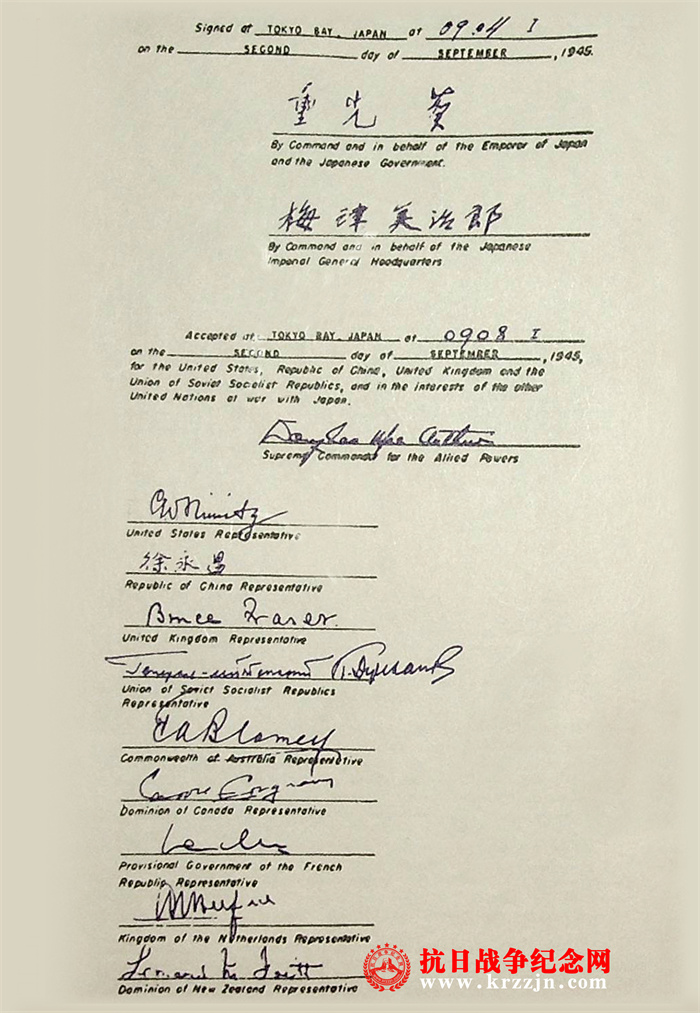 Signed at TOKYO BAY, JAPAN at 0904 I
on the SECOND day of SEPTEMBER, 1945.
重光葵
By Command and in behalf of the Emperor of Japan
and the Japanese Government.
梅津美治郎
By Command and in behalf of the Japanese
Imperial General Headquarters
Accepted at TOKYO BAY, JAPAN at 0908 I
on the SECOND day of SEPTEMBER, 1945,
for the United States, Republic of China, United Kingdom and the
Union of Soviet Socialist Republics, and in the interests of the other
United Nations at war with Japan.
Douglas MacArthur
Supreme Commander for the Allied Powers
C W Nimitz
United States Representative
徐永昌
Republic of China Representative
Bruce Fraser
United Kingdom Representative
Union of Soviet Socialist Republics
Representative
T A Blamey
Commonwealth of Australia Representative
Dominion of Canada Representative
Provisional Government of the French
Republic Representative
Kingdom of the Netherlands Representative
Dominion of New Zealand Representative
抗日战争纪念网
www.krzzjn.com